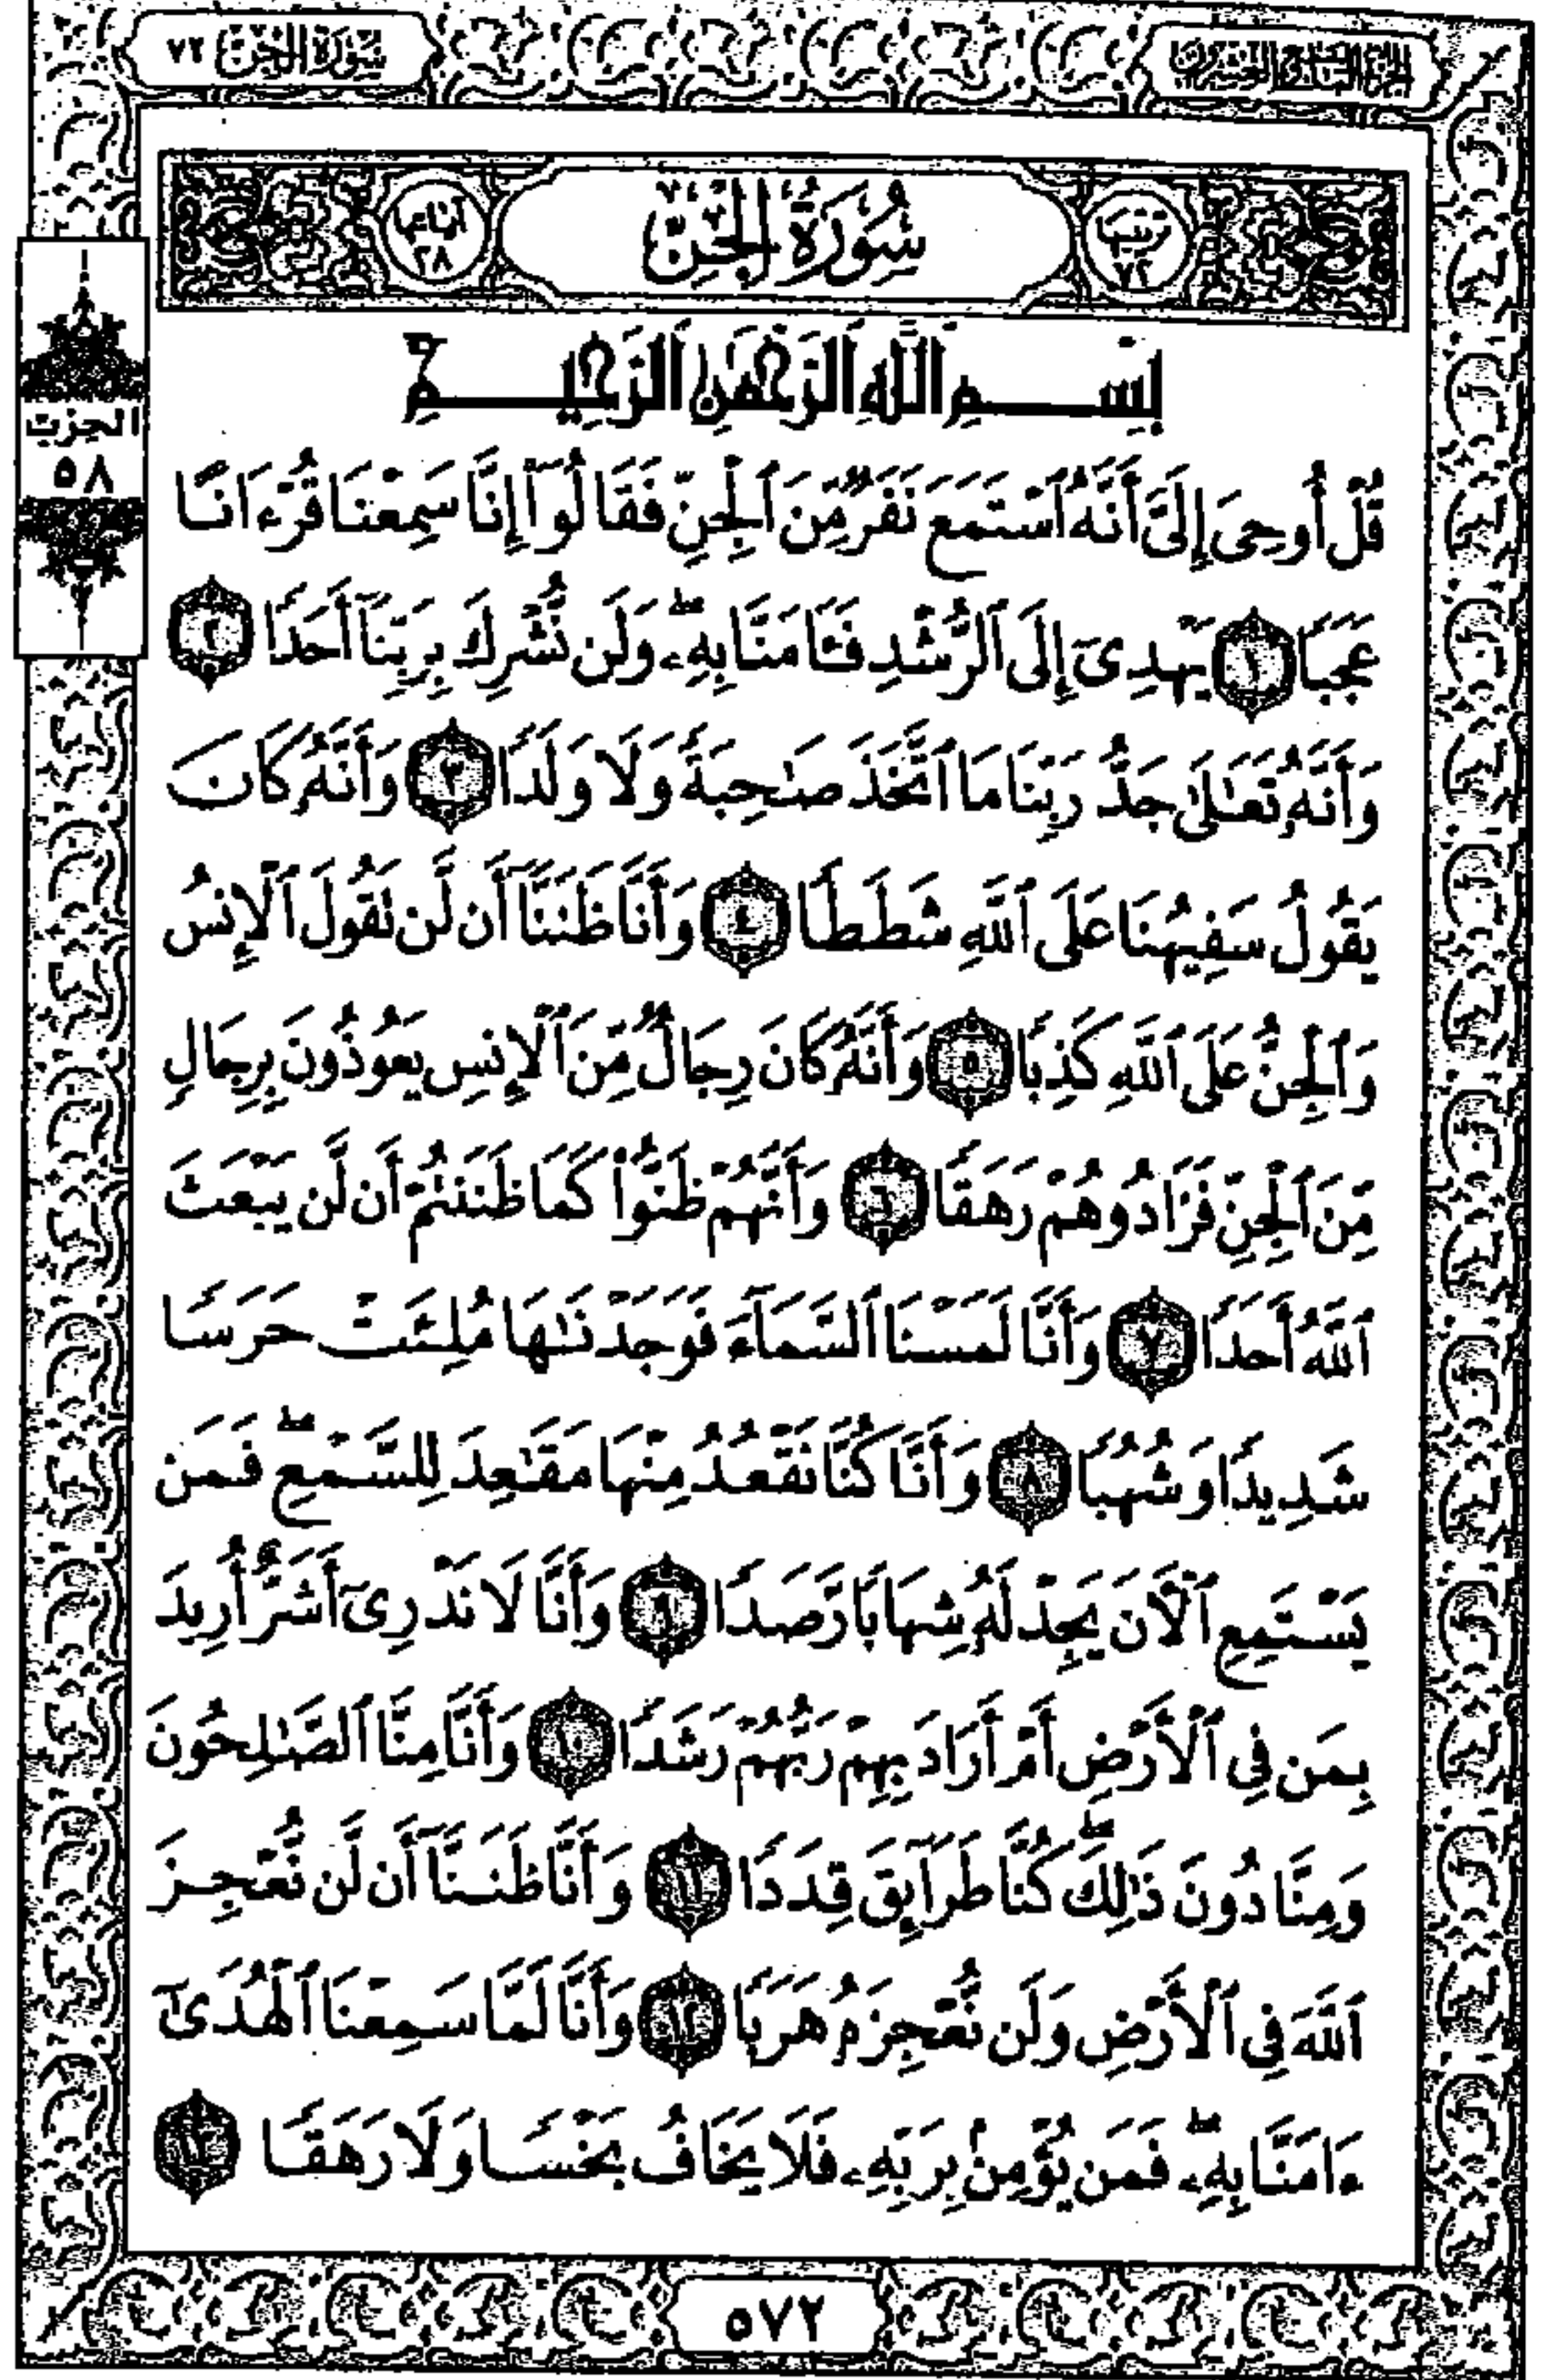 الجزء التاسع والعشرون
سورة الجن ٧٢
ترتيبها ٧٢
سُورَةُ الجِنِّ
آياتها ٢٨
بِسْمِ ٱللَّهِ ٱلرَّحْمَٰنِ ٱلرَّحِيمِ
الحزب
٥٨
قُلْ أُوحِىَ إِلَىَّ أَنَّهُ ٱسْتَمَعَ نَفَرٌ مِّنَ ٱلْجِنِّ فَقَالُوٓا۟ إِنَّا سَمِعْنَا قُرْءَانًا
عَجَبًا ١ يَهْدِىٓ إِلَى ٱلرُّشْدِ فَـَٔامَنَّا بِهِۦ ۖ وَلَن نُّشْرِكَ بِرَبِّنَآ أَحَدًا ٢
وَأَنَّهُۥ تَعَٰلَىٰ جَدُّ رَبِّنَا مَا ٱتَّخَذَ صَٰحِبَةً وَلَا وَلَدًا ٣ وَأَنَّهُۥ كَانَ
يَقُولُ سَفِيهُنَا عَلَى ٱللَّهِ شَطَطًا ٤ وَأَنَّا ظَنَنَّآ أَن لَّن نَقُولَ ٱلْإِنسُ
وَٱلْجِنُّ عَلَى ٱللَّهِ كَذِبًا ٥ وَأَنَّهُۥ كَانَ رِجَالٌ مِّنَ ٱلْإِنسِ يَعُوذُونَ بِرِجَالٍ
مِّنَ ٱلْجِنِّ فَزَادُوهُمْ رَهَقًا ٦ وَأَنَّهُمْ ظَنُّوا۟ كَمَا ظَنَنتُمْ أَن لَّن يَبْعَثَ
ٱللَّهُ أَحَدًا ٧ وَأَنَّا لَمَسْنَا ٱلسَّمَآءَ فَوَجَدْنَٰهَا مُلِئَتْ حَرَسًا
شَدِيدًا وَشُهُبًا ٨ وَأَنَّا كُنَّا نَقْعُدُ مِنْهَا مَقَٰعِدَ لِلسَّمْعِ ۖ فَمَن
يَسْتَمِعِ ٱلْـَٔانَ يَجِدْ لَهُۥ شِهَابًا رَّصَدًا ٩ وَأَنَّا لَا نَدْرِىٓ أَشَرٌّ أُرِيدَ
بِمَن فِى ٱلْأَرْضِ أَمْ أَرَادَ بِهِمْ رَبُّهُمْ رَشَدًا ١٠ وَأَنَّا مِنَّا ٱلصَّٰلِحُونَ
وَمِنَّا دُونَ ذَٰلِكَ ۖ كُنَّا طَرَآئِقَ قِدَدًا ١١ وَأَنَّا ظَنَنَّآ أَن لَّن نُّعْجِزَ
ٱللَّهَ فِى ٱلْأَرْضِ وَلَن نُّعْجِزَهُۥ هَرَبًا ١٢ وَأَنَّا لَمَّا سَمِعْنَا ٱلْهُدَىٰٓ
ءَامَنَّا بِهِۦ ۖ فَمَن يُؤْمِنۢ بِرَبِّهِۦ فَلَا يَخَافُ بَخْسًا وَلَا رَهَقًا ١٣
٥٧٢